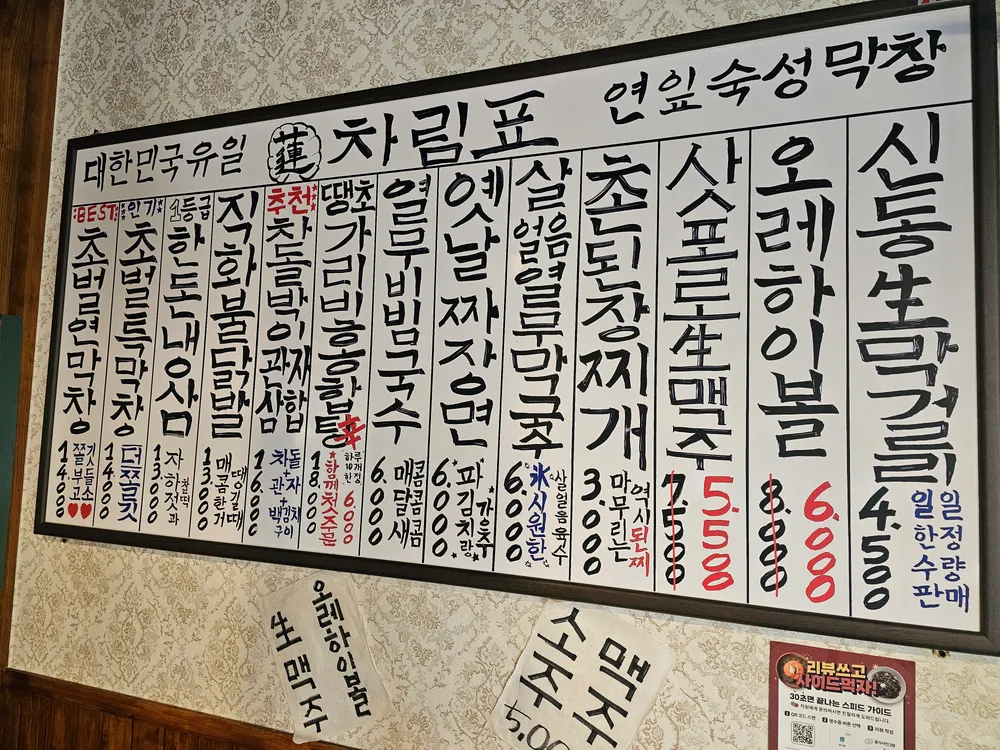 대한민국유일 蓮 차림표 연잎숙성막창
BEST
초벌연막창
14.000
쫄깃
부들
고소
인기
초벌특막창
14.000
더쫄깃
1등급
한돈내삼
13.000
자하젓과
찰떡
직화불닭발
13.000
매콤한거
땡길때
추천
차돌박이
관자
삼합
16.000
차돌
+
관자
+
백김치
구이
땡초가리비홍합탕
辛
18.000
함께첫주문
6.000
하루
10개
한정
열무비빔국수
6.000
매콤
달콤
새콤
옛날짜장면
6.000
파김치랑
살얼음열무막국수
6.000
氷시원한
살얼음육수
촌된장찌개
3.000
마무리는
역시된찌
삿포로生맥주
7.500
5.500
오레하이볼
8.000
6.000
신동生막걸리
4.500
일일
한정
수량
판매
오레하이볼
生맥주
맥주
소주
5.00
리뷰쓰고
사이드먹자!
30초면 끝나는 스피드 가이드